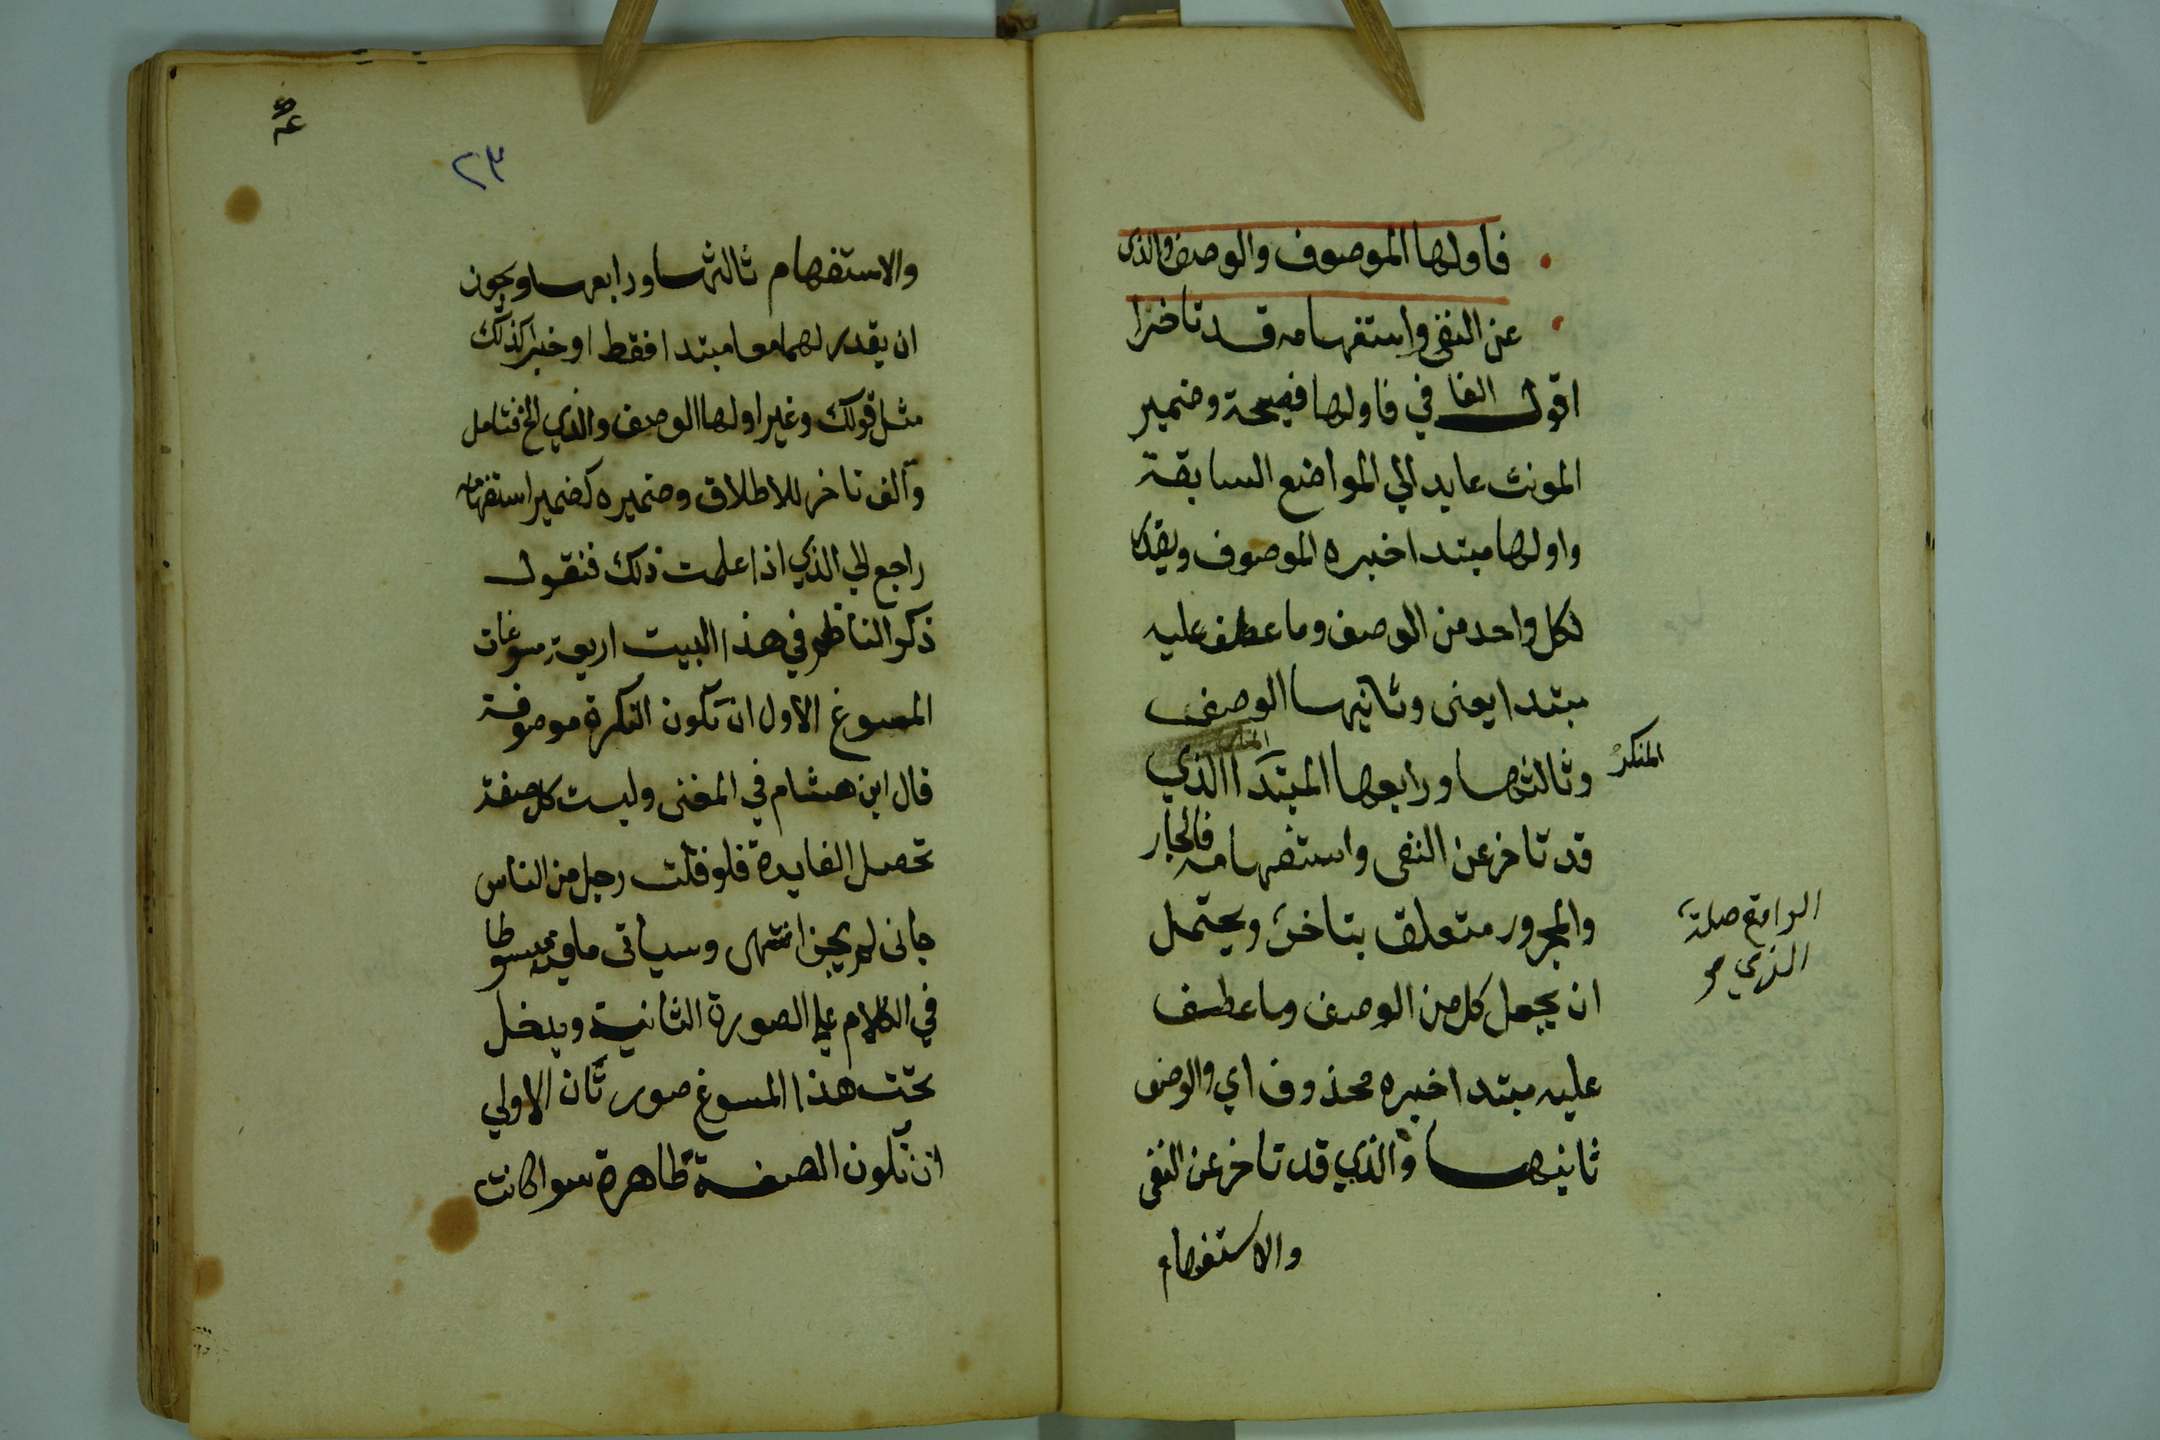 فاولها الموصوف والوصف والذى
عن النفى واستفهامه قد تاخرا
اقول الفا في فاولها فصيحة وضمير
المونث عايد الي المواضع السابقة
واولها مبتدا خبره الموصوف ويقدر
لكل واحد من الوصف وما عطف عليه
مبتدا يعنى وثانيها الوصف
وثالثها ورابعها المبتدا الذي
المنكر
قد تاخر عن النفى واستفهامه فالجار
والمجرور متعلق بتاخر ويحتمل
الواقع صلة
الذي
ان يجعل كل من الوصف وما عطف
عليه مبتدا خبره محذوف اي والوصف
ثانيها والذي قد تاخر عن النفى
والاستفهام
٢٣
والاستفهام ثالثها ورابعها ويجوز
ان يقدر لهما معا مبتدا فقط او خبر كذلك
مثل قولك وغير اولها الوصف والذي الخ فتامل
والف تاخر للاطلاق وضميره كضمير استفهامه
راجع الي الذي اذا علمت ذلك فنقول
ذكر الناظم في هذا البيت اربعة مسوغات
المسوغ الاول ان تكون النكرة موصوفة
قال ابن هشام في المغنى وليست كل صفة
تحصل الفايدة فلو قلت رجل من الناس
جانى لم يجز انتهى وسياتى ما فيه مبسوطا
في الكلام علي الصورة الثانية ويدخل
تحت هذا المسوغ صور ثمان الاولي
ان تكون الصفة ظاهرة سوا كانت